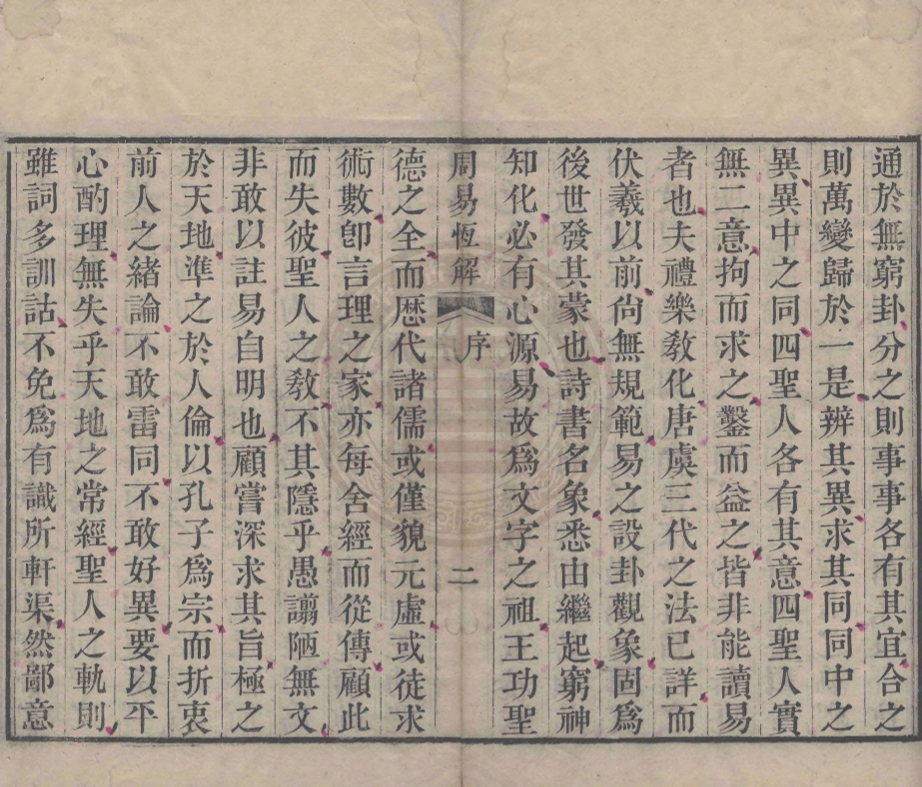 通於無窮卦分之則事事各有其宜合之
則萬變歸於一是辨其異求其同同中之
異異中之同四聖人各有其意四聖人實
無二意拘而求之鑿而益之皆非能讀易
者也夫禮樂敎化唐虞三代之法已詳而
伏羲以前尙無規範易之設卦觀象固爲
後世發其蒙也詩書名象悉由繼起窮神
知化必有心源易故爲文字之祖王功聖
周易恆解
序
二
德之全而歷代諸儒或僅貌元虛或徒求
術數卽言理之家亦每舍經而從傳顧此
而失彼聖人之敎不其隱乎愚譾陋無文
非敢以註易自明也顧嘗深求其旨極之
於天地準之於人倫以孔子爲宗而折衷
前人之緒論不敢雷同不敢好異要以平
心酌理無失乎天地之常經聖人之軌則
雖詞多訓詁不免爲有識所軒渠然鄙意